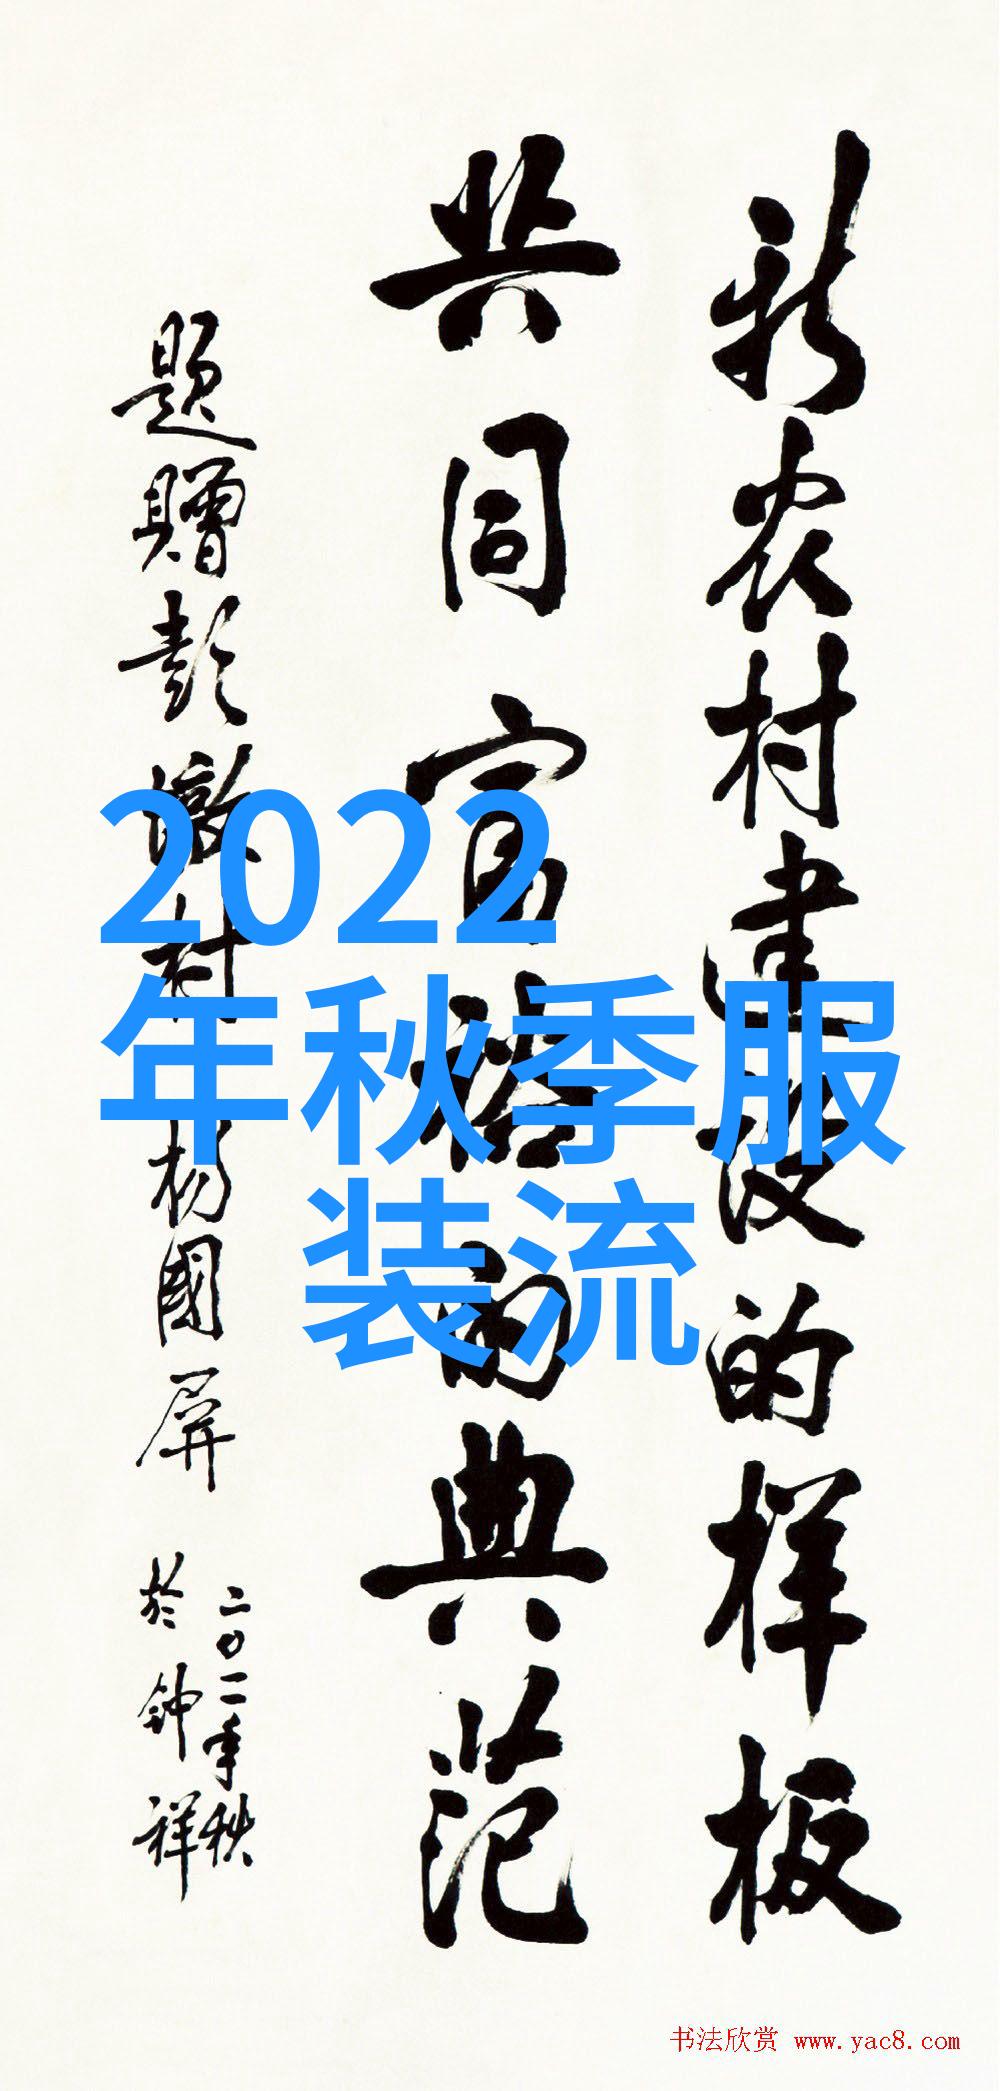 新农村建设的样板
共同富裕的典范
题赠彭墩村杨國屏
二〇一一年秋
於钟祥
2022
年秋季服
装流
书法欣赏 www.yac8.com